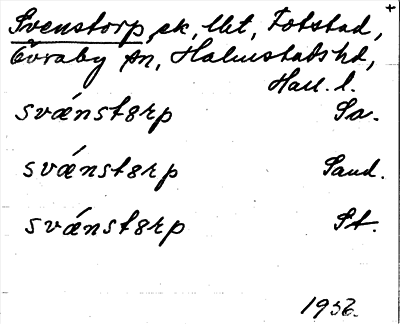 Svenstorp, sk, lht, Fotstad,
Övraby sn, Halmstads hd,
Hall. l.
svǽnstɐrp Sa.
svǽnstɐrp Sand.
svǽnstɐrp St.
1936.